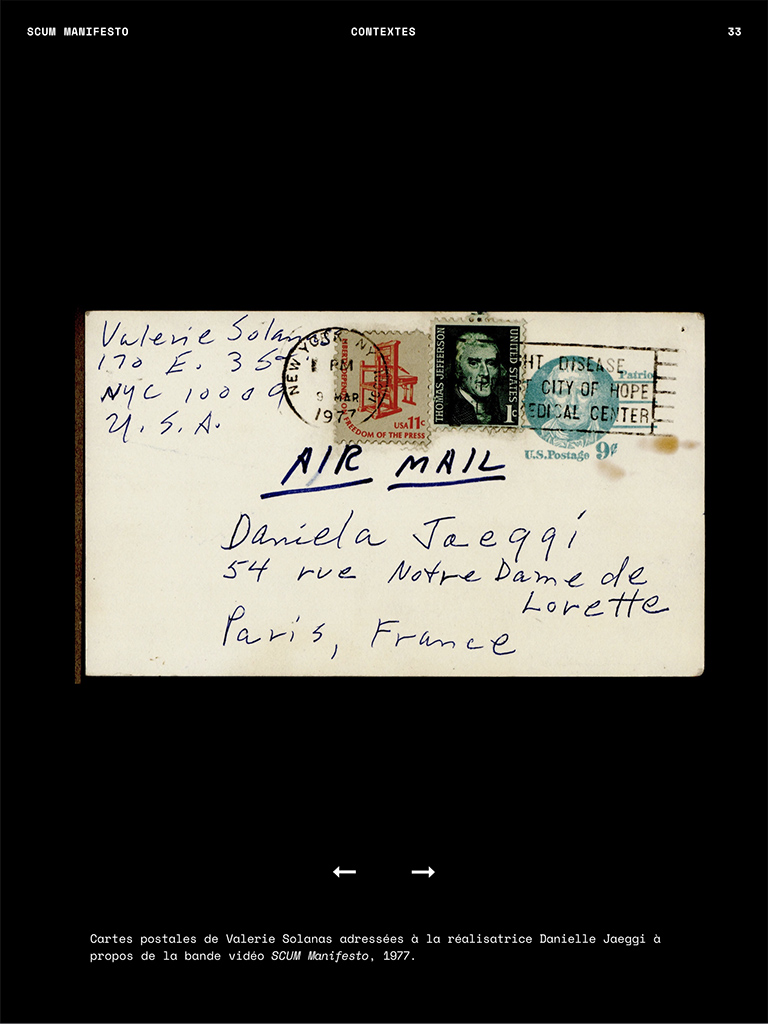 SCUM MANIFESTO
CONTEXTES
33
Valerie
170 E. 3
NYC 1000
U. S. A.
NEW YORK NY
PM
9 MAR
1977
FREEDOM OF THE PRESS
USA 11c
THOMAS JEFFERSON
UNITED STATES
1c
HT DISEASE
CITY OF HOPE
EDICAL CENTER
Patrio
U.S.Postage 9¢
AIR MAIL
Daniela Jaeggi
54 rue Notre Dame de
Lorette
Paris, France
Cartes postales de Valerie Solanas adressées à la réalisatrice Danielle Jaeggi à
propos de la bande vidéo SCUM Manifesto, 1977.